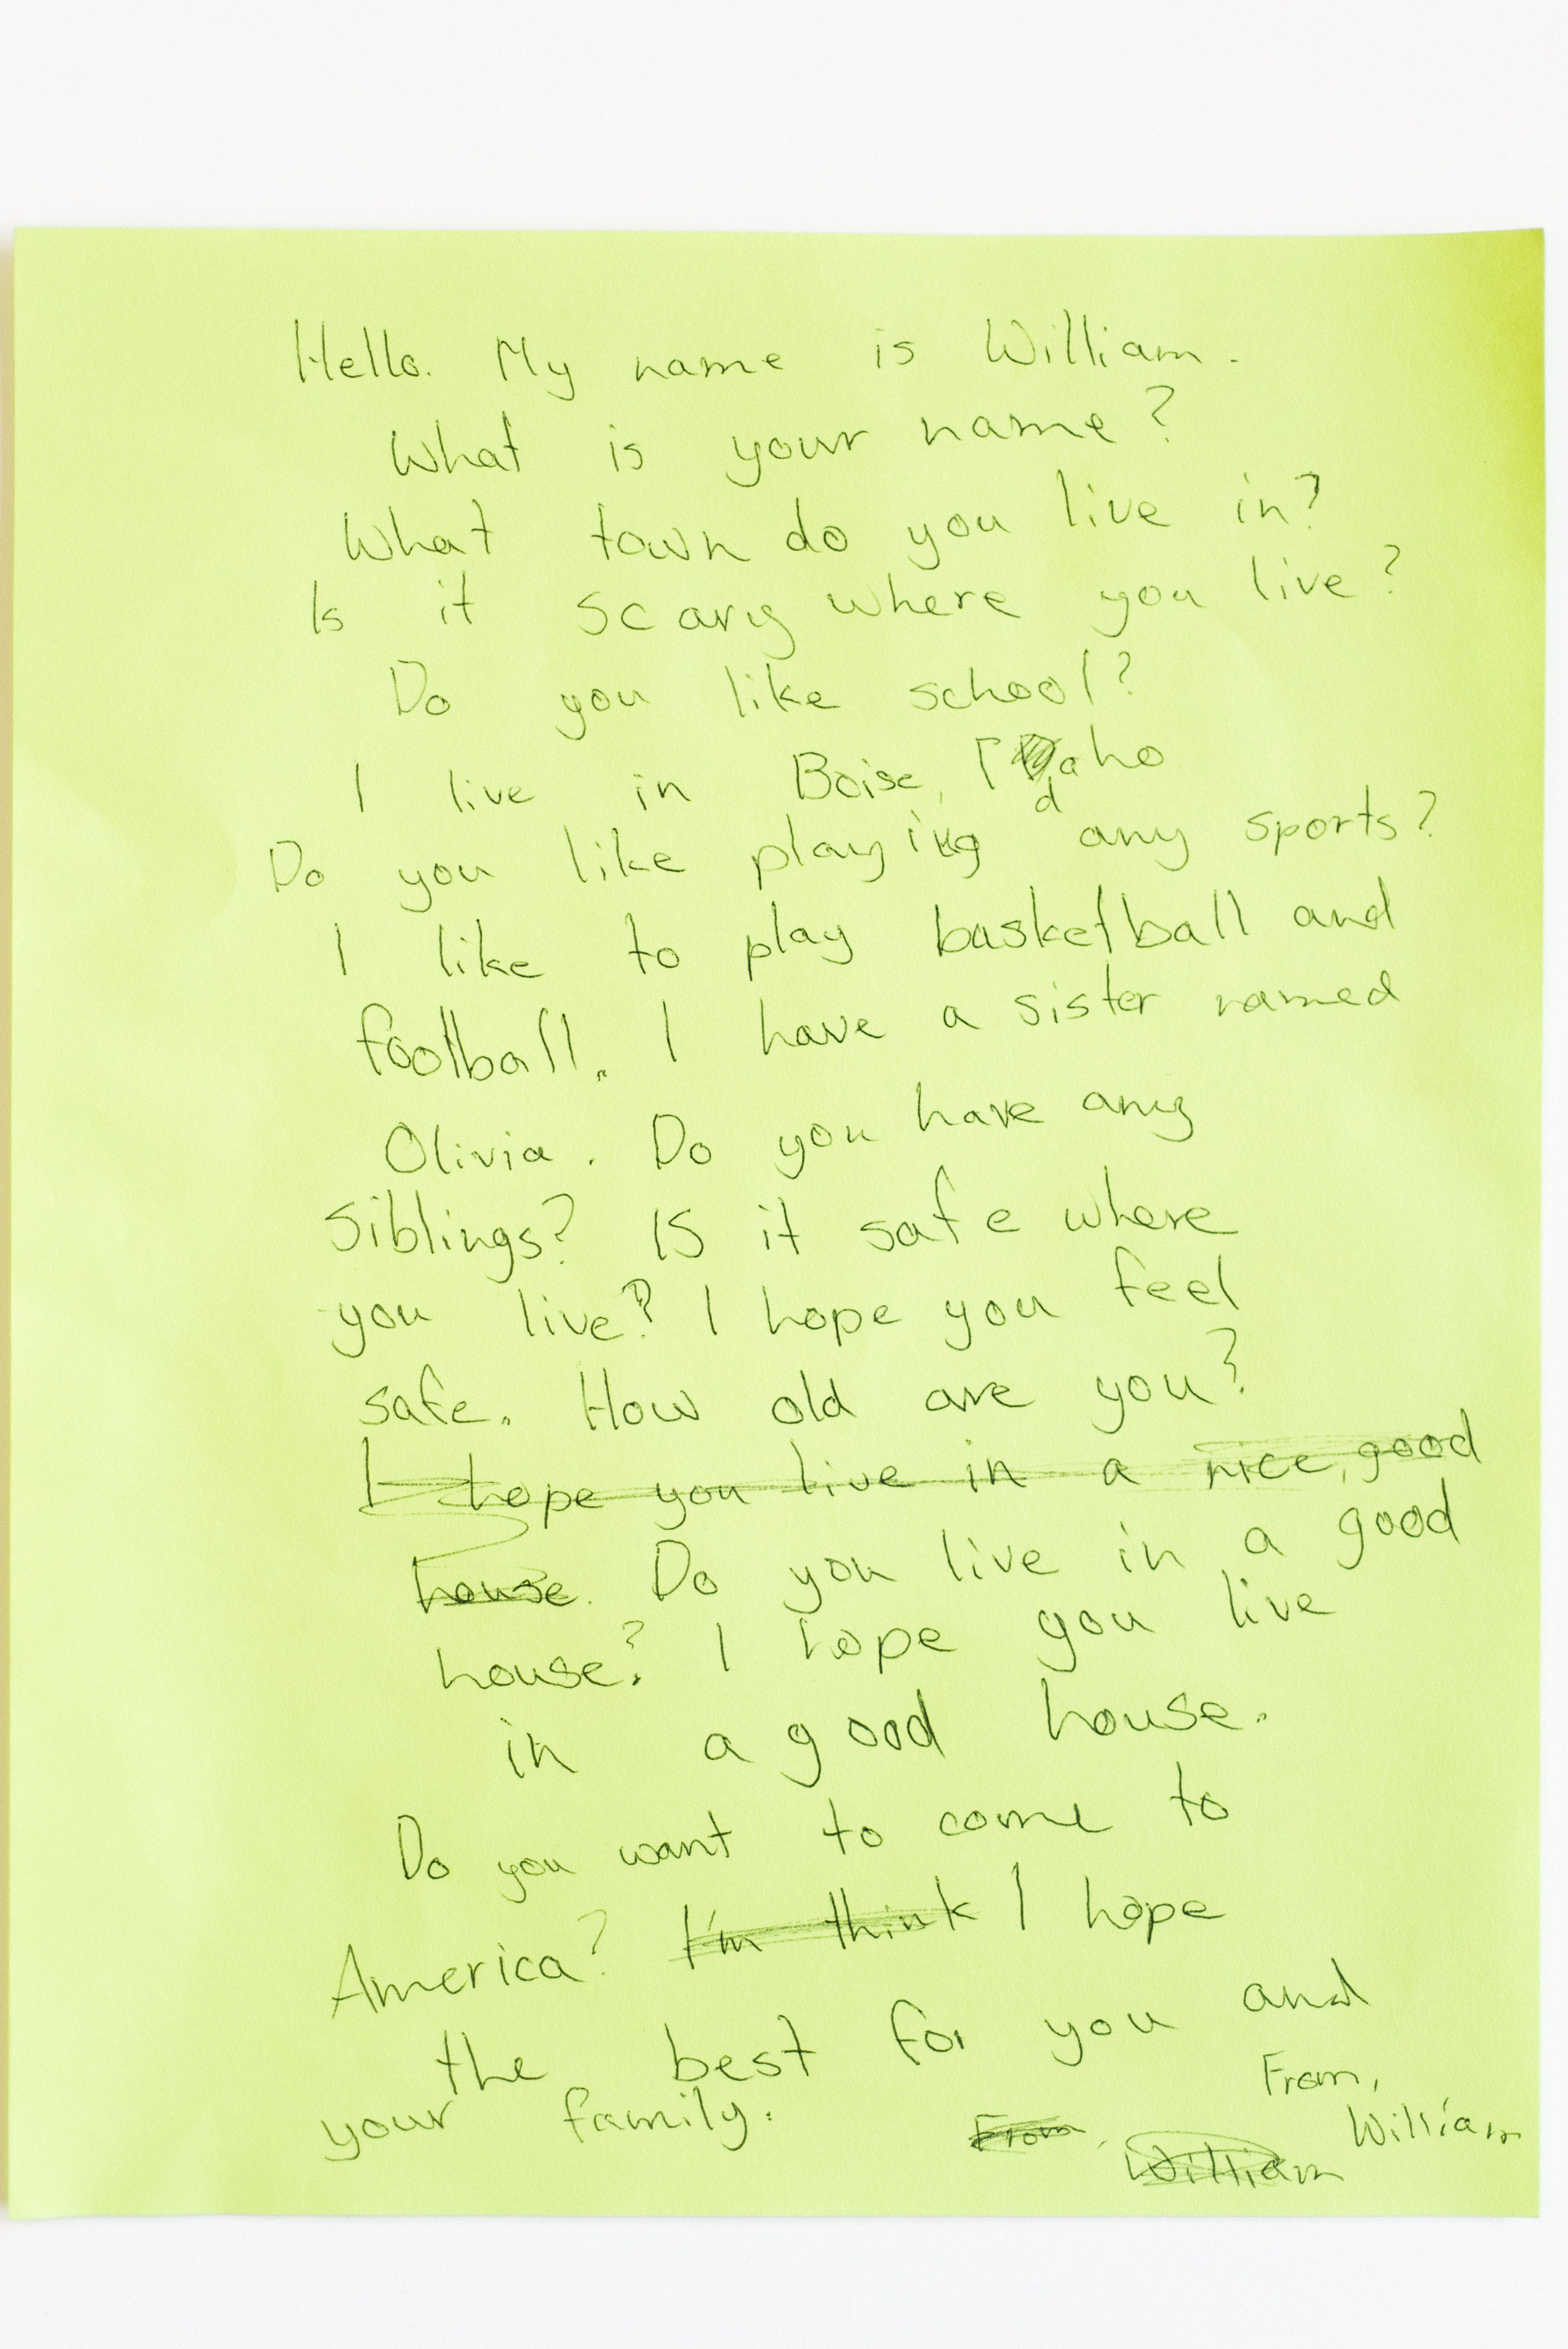 Hello. My name is William.
What is your name?
What town do you live in?
Is it scary where you live?
Do you like school?
I live in Boise, Idaho
Do you like playing any sports?
I like to play basketball and
football. I have a sister named
Olivia. Do you have any
siblings? IS it safe where
you live? I hope you feel
safe. How old are you?
I hope you live in a nice, good
house. Do you live in a good
house? I hope you live
in a good house.
Do you want to come to
America? I'm think I hope
the best for you and
your family.
From,
William
From,
William